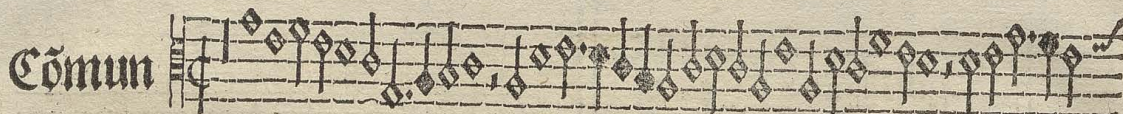 Cõmun